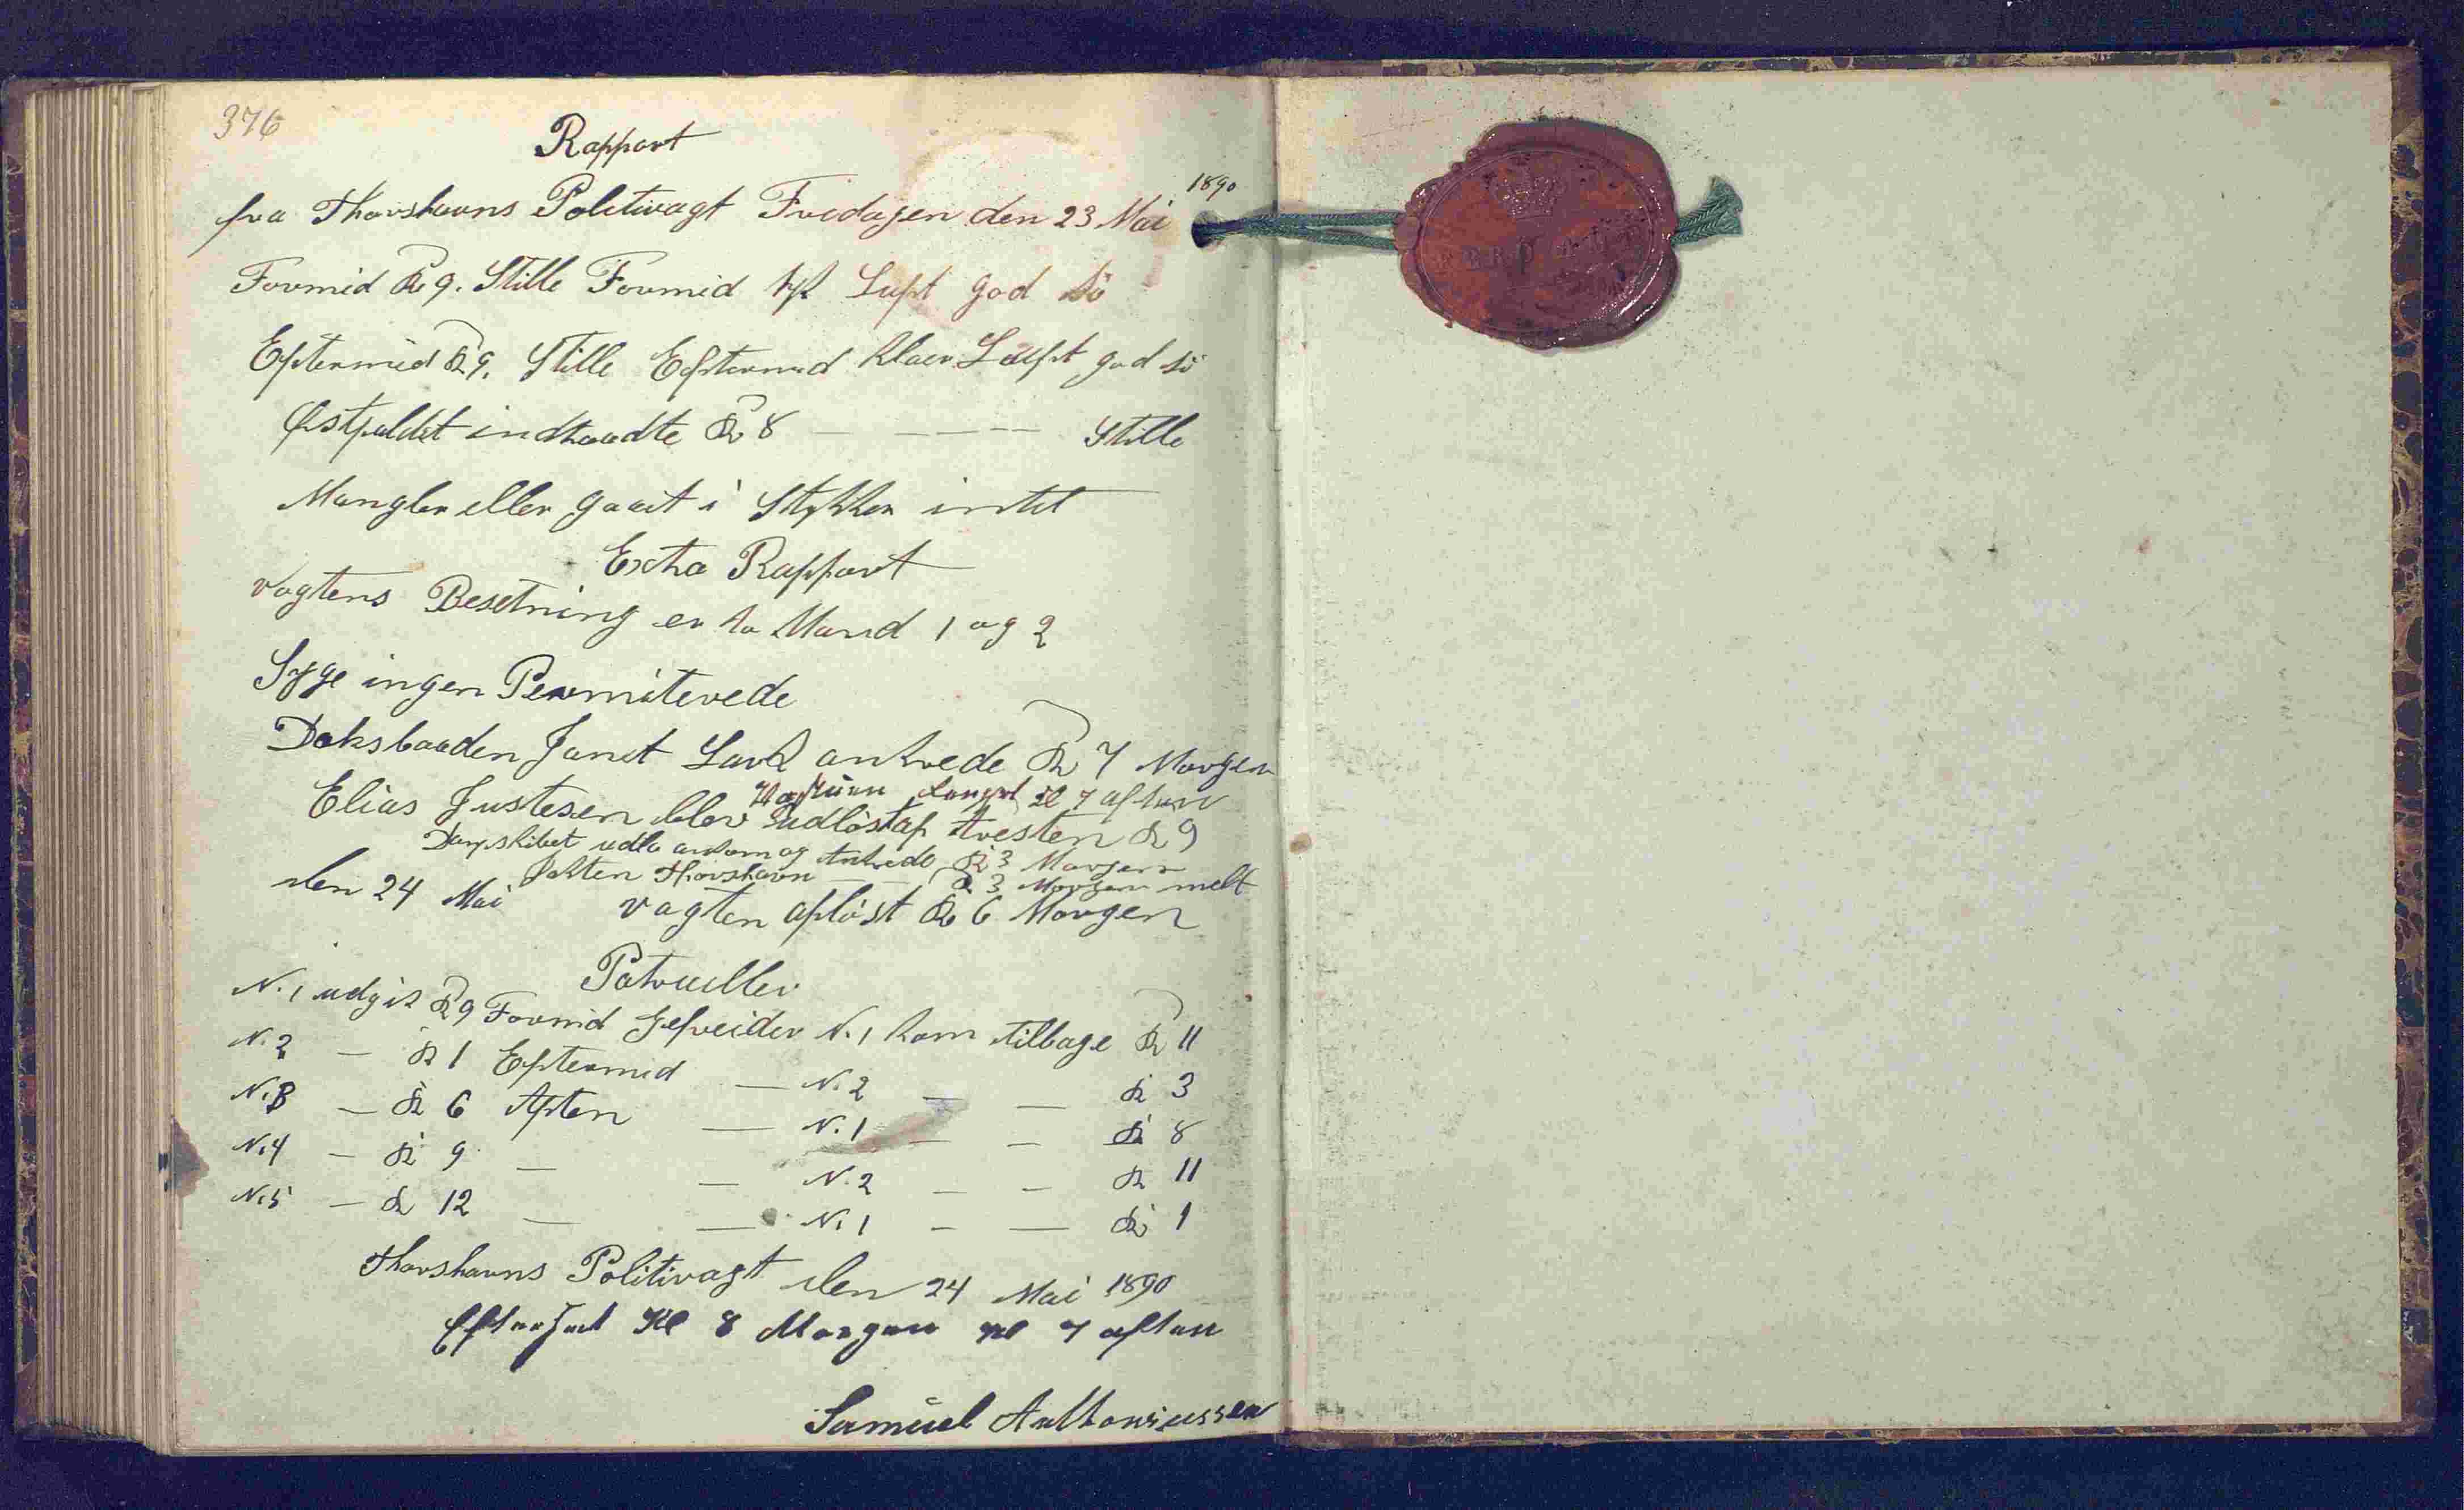 376
Rapport
fra Thorshavns Politivagt Fredagen den 23 Mai 1890
Formid Kl 9. Stille Formid tyk Luft god sö
Eftermid Kl 9. Stille Eftermid klaer Lauft god sö
Østfaldet indtraadte Kl 8 — — — — Stille
Mangler eller gaaet i Stykker intet
Extra Rapport
Vagtens Besetning er to Mand 1 og 2
Syge ingen Permiterede
Doksbaaden Janet ankrede Kl 7 Morgen
Kl 7 aften
Elias Justesen blev udlöst af Aresten Kl 9
ankom og Ankrede Kl 3 Morgen
Jakten Thorshavn — — Kl 3 Morgen melt
den 24 Mai vagten aflöst Kl 6 Morgen
Patruller
N. 1 udgik Kl 9 Formid Gefreider N. 1 kom tilbage Kl 11
N. 2 — Kl 1 Eftermid — N. 2 — — Kl 3
N. 3 — Kl 6 Aften — N. 1 — — Kl 8
N. 4 — Kl 9 — — N. 2 — — Kl 11
N. 5 — Kl 12 — — N. 1 — — Kl 1
Thorshavns Politivagt den 24 Mai 1890
Kl 8 Morgen Kl 7 aften
Samuel Anthoniussen